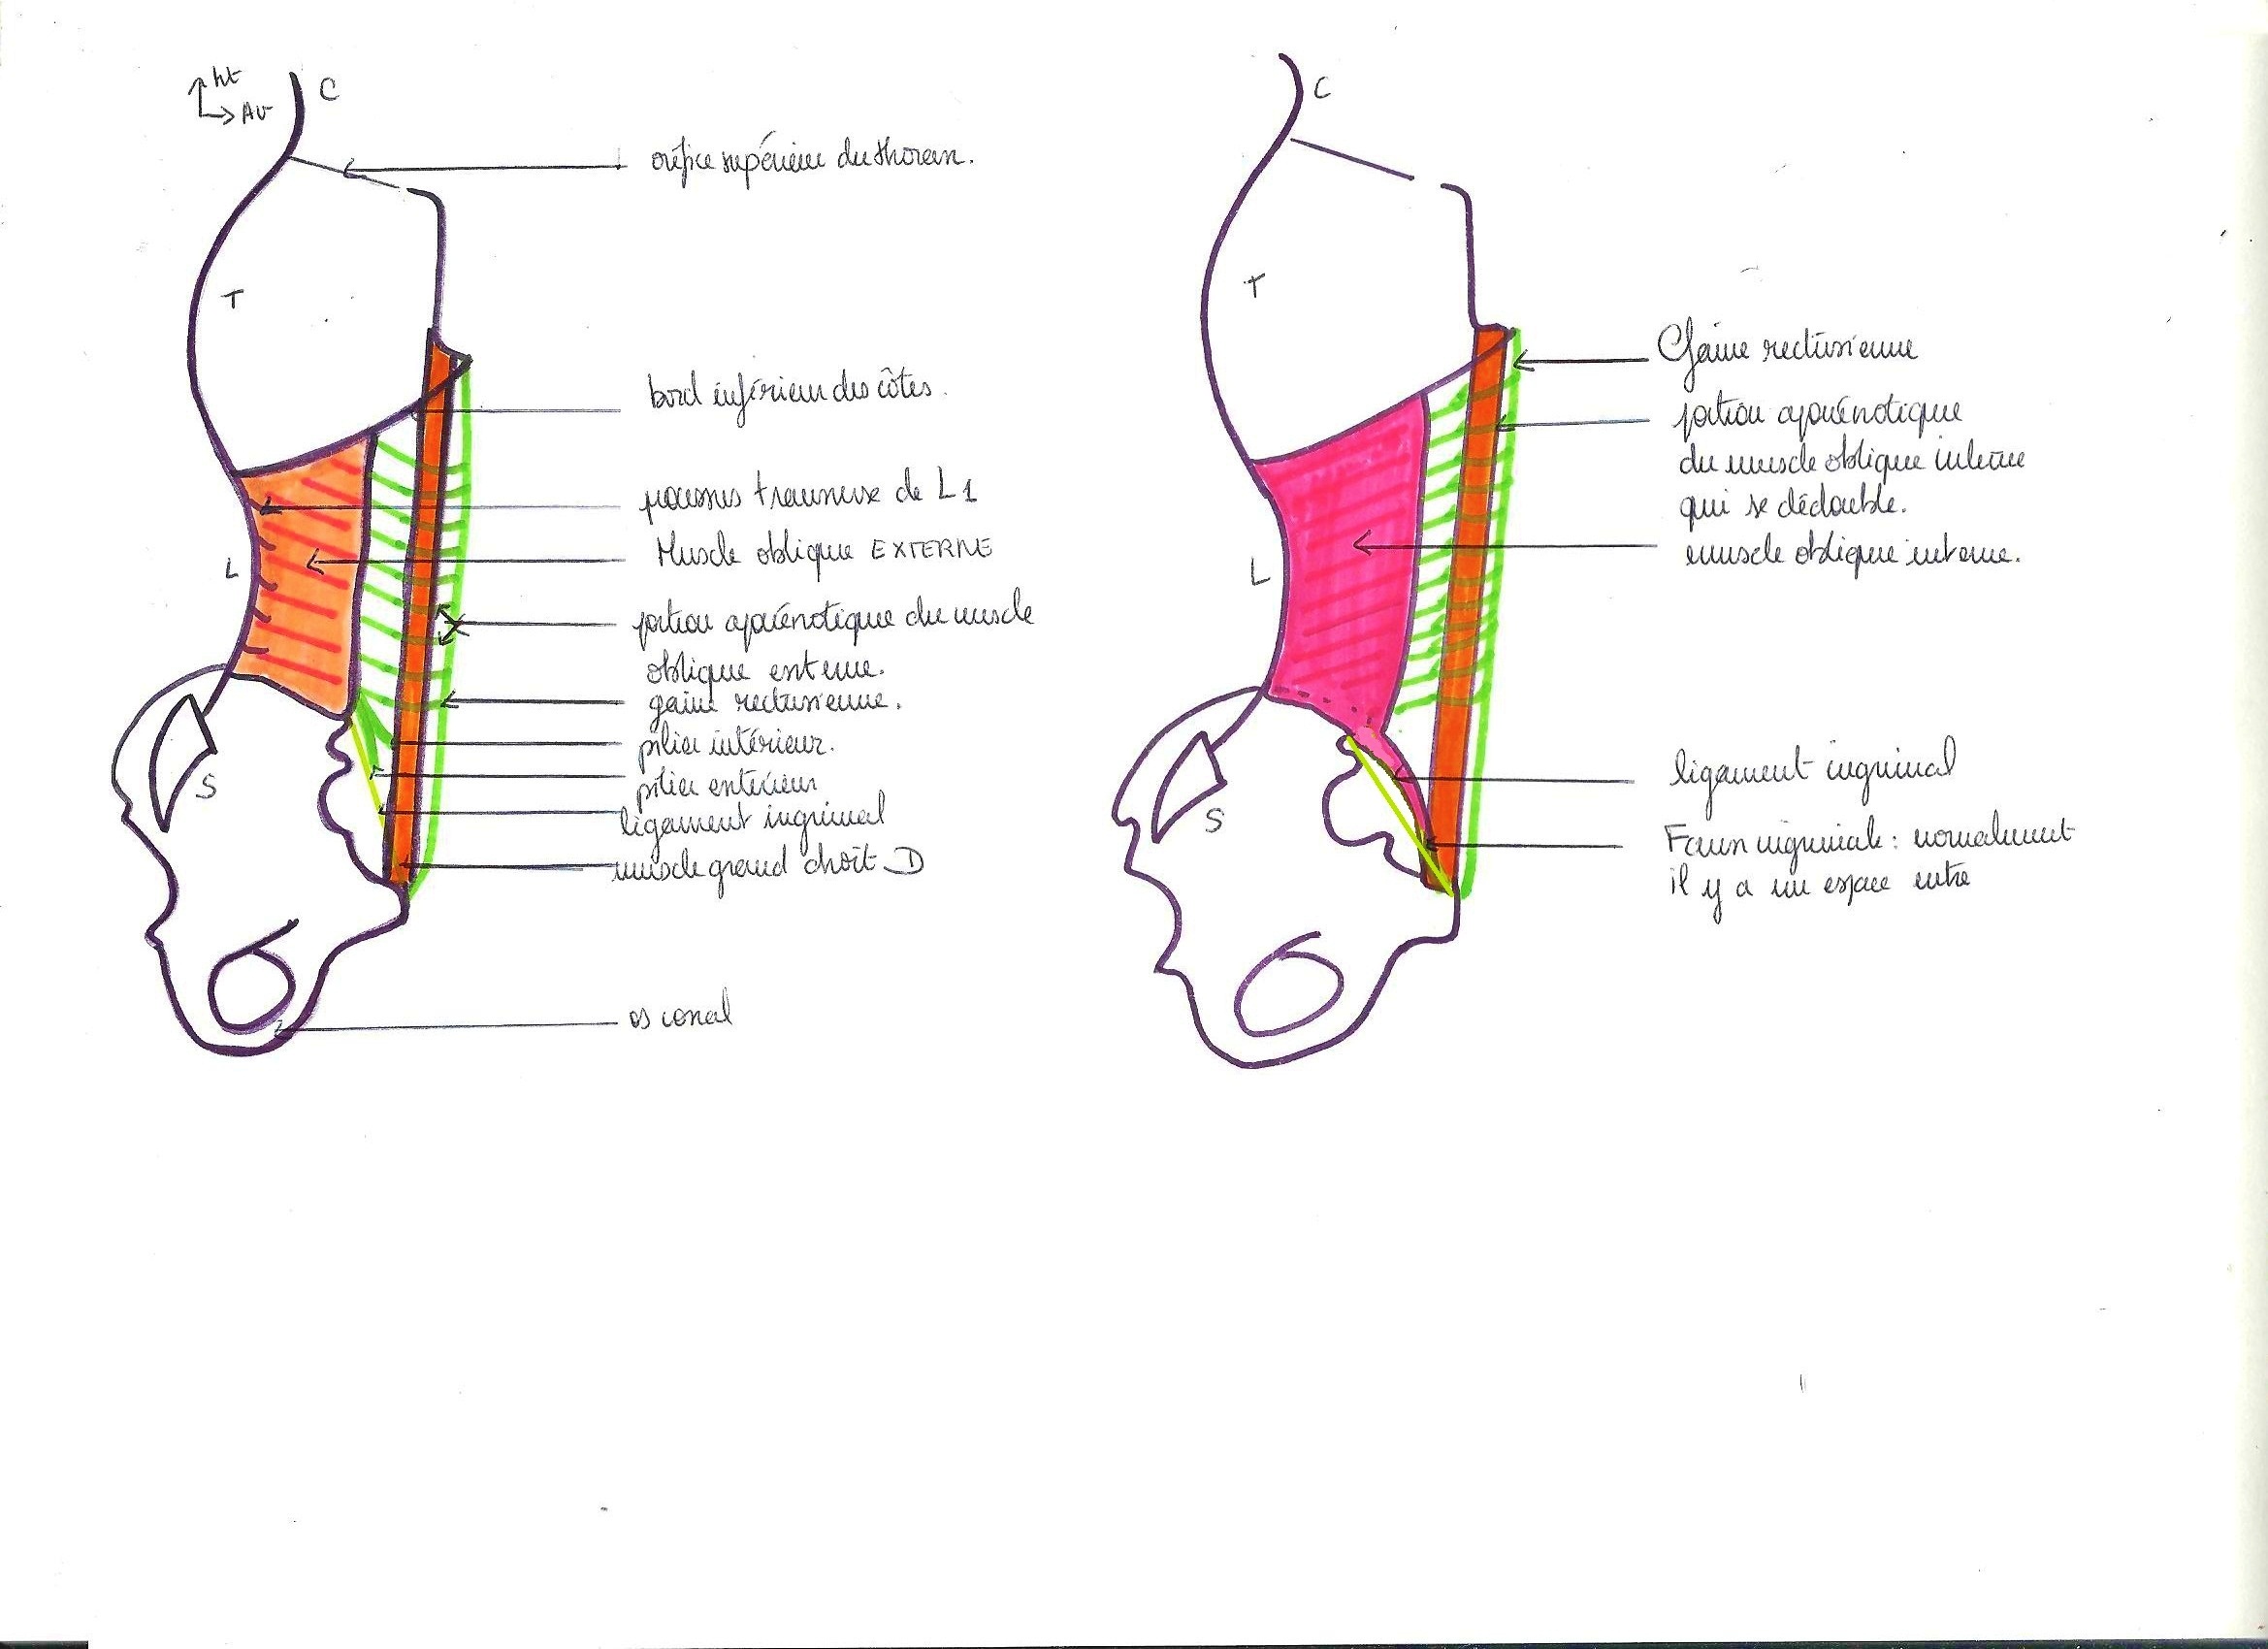 ht
Av
C
orifice supérieur du thorax.
T
bord inférieur des côtes.
processus transverse de L1
Muscle oblique EXTERNE
L
portion aponévrotique du muscle
oblique externe.
gaine rectusienne.
pilier intérieur.
pilier extérieur
S
ligament inguinal
muscle grand droit D
os coxal
C
T
Gaine rectusienne
portion aponévrotique
du muscle oblique interne
qui se dédouble.
muscle oblique interne.
L
ligament inguinal
S
Faux inguinale : normalement
il y a un espace entre